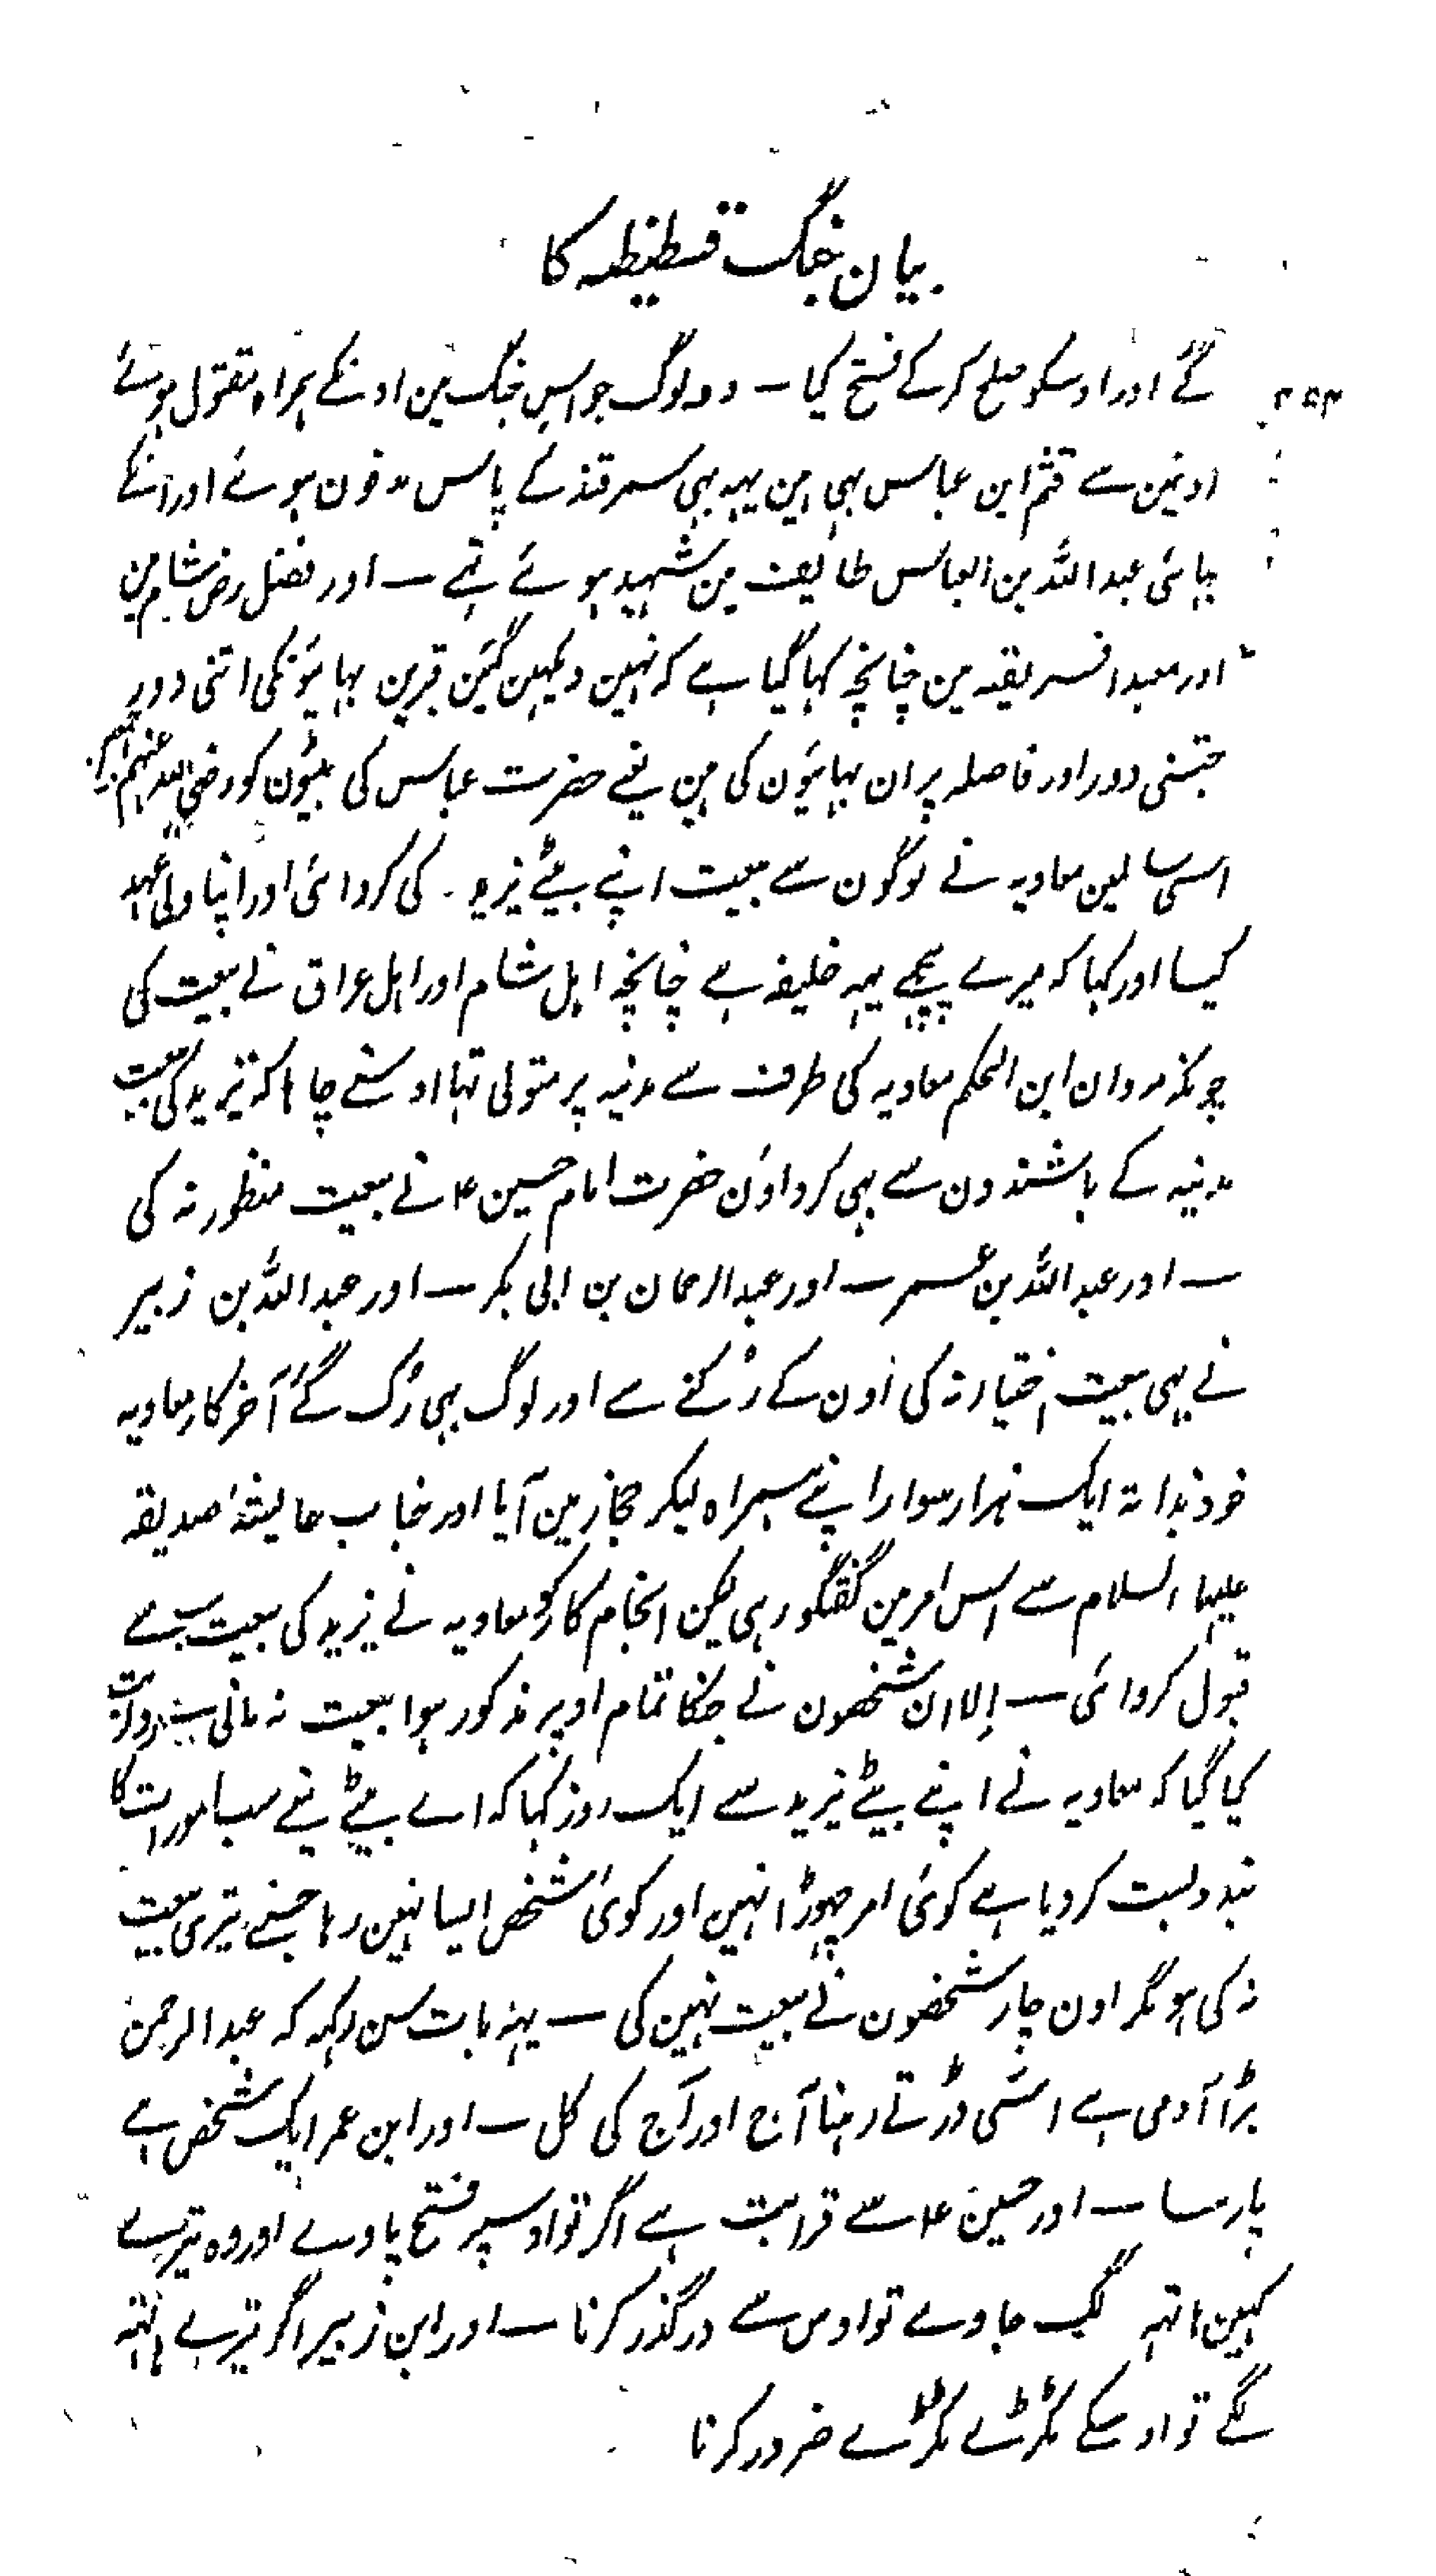 بیان جنگ قسطنطیہ کا
گئے اور اوسکو صلح کرکے فتح کیا — وہ لوگ جو اس جنگ مین اونکے ہمراہ مقتول ہوئے
۲۵۴
اونمین سے قثم ابن عباس بھی ہین یہہ بھی سمرقند کے پاس مدفون ہوئے اور انکے
بہائی عبداللہ بن العباس طایف مین شہید ہوئے تھے — اور فضل رض شام مین
اور معبد افریقہ مین چنانچہ کہا گیا ہے کہ نہین دیکہین گئین قبرین بہائیونکی اتنی دور
جتنی دور اور فاصلہ پر ان بہائیون کی ہین یعنے حضرت عباس کی بیٹون کو رضی اللہ عنہم
اسی سالمین معاویہ نے لوگون سے بیعت اپنے بیٹے یزید کی کروائی اور اپنا ولی عہد
کیسا اور کہا کہ میرے پیچھے یہہ خلیفہ ہے چنانچہ اہل شام اور اہل عراق نے بیعت کی
چونکہ مروان ابن الحکم معاویہ کی طرف سے مدنیہ پر متولی تہا اوسنے چاہا کہ یزید کی بیعت
مدنیہ کے باشندون سے بھی کرواون حضرت امام حسین ۴ نے بیعت منظور نہ کی
— اور عبداللہ بن عمر — اور عبدالرحمان بن ابی بکر — اور عبداللہ بن زبیر
نے بھی بیعت اختیار نہ کی اُون کے رُکنے سے اور لوگ بھی رُک گئے آخر کار معاویہ
خود بذاتہ ایک ہزار سوار اپنے ہمراہ لیکر حجاز مین آیا اور جناب عایشہ صدیقہ
علیہا السلام سے اس امر مین گفتگو رہی لیکن انجام کار کو معاویہ نے یزید کی بیعت سب سے
قبول کروائی — اِلا ان شخصون نے جنکا تمام اوپر مذکور ہوا بیعت نہ مانی روایت
کیا گیا کہ معاویہ نے اپنے بیٹے یزید سے ایک روز کہا کہ اے بیٹے مینے سب امورات کا
بندوبست کر دیا ہے کوئی امر چہوڑا نہین اور کوئی شخص ایسا نہین رہا جسنے تیری بیعت
نہ کی ہو مگر اون چار شخصون نے بیعت نہین کی — یہہ بات سن رکہہ کہ عبدالرحمن
بڑا آدمی ہے اسی ڈرتے رہنا آج اور آج کی کل — اور ابن عمر ایک شخص ہے
پارسا — اور حسین ۴ سے قرابت ہے اگر تو اوسپر فتح پاوے اور وہ تیرے
کہین ہاتہہ لگ جاوے تو اوس سے درگذر کرنا — اور ابن زبیر اگر تیرے ہاتہہ
لگے تو اوسکے ٹکڑے ٹکڑے ضرور کرنا